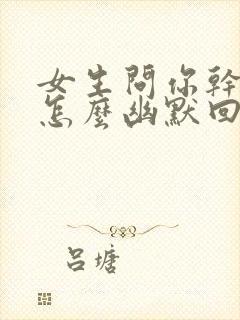 女生問你幹
怎麼幽默回
呂塘